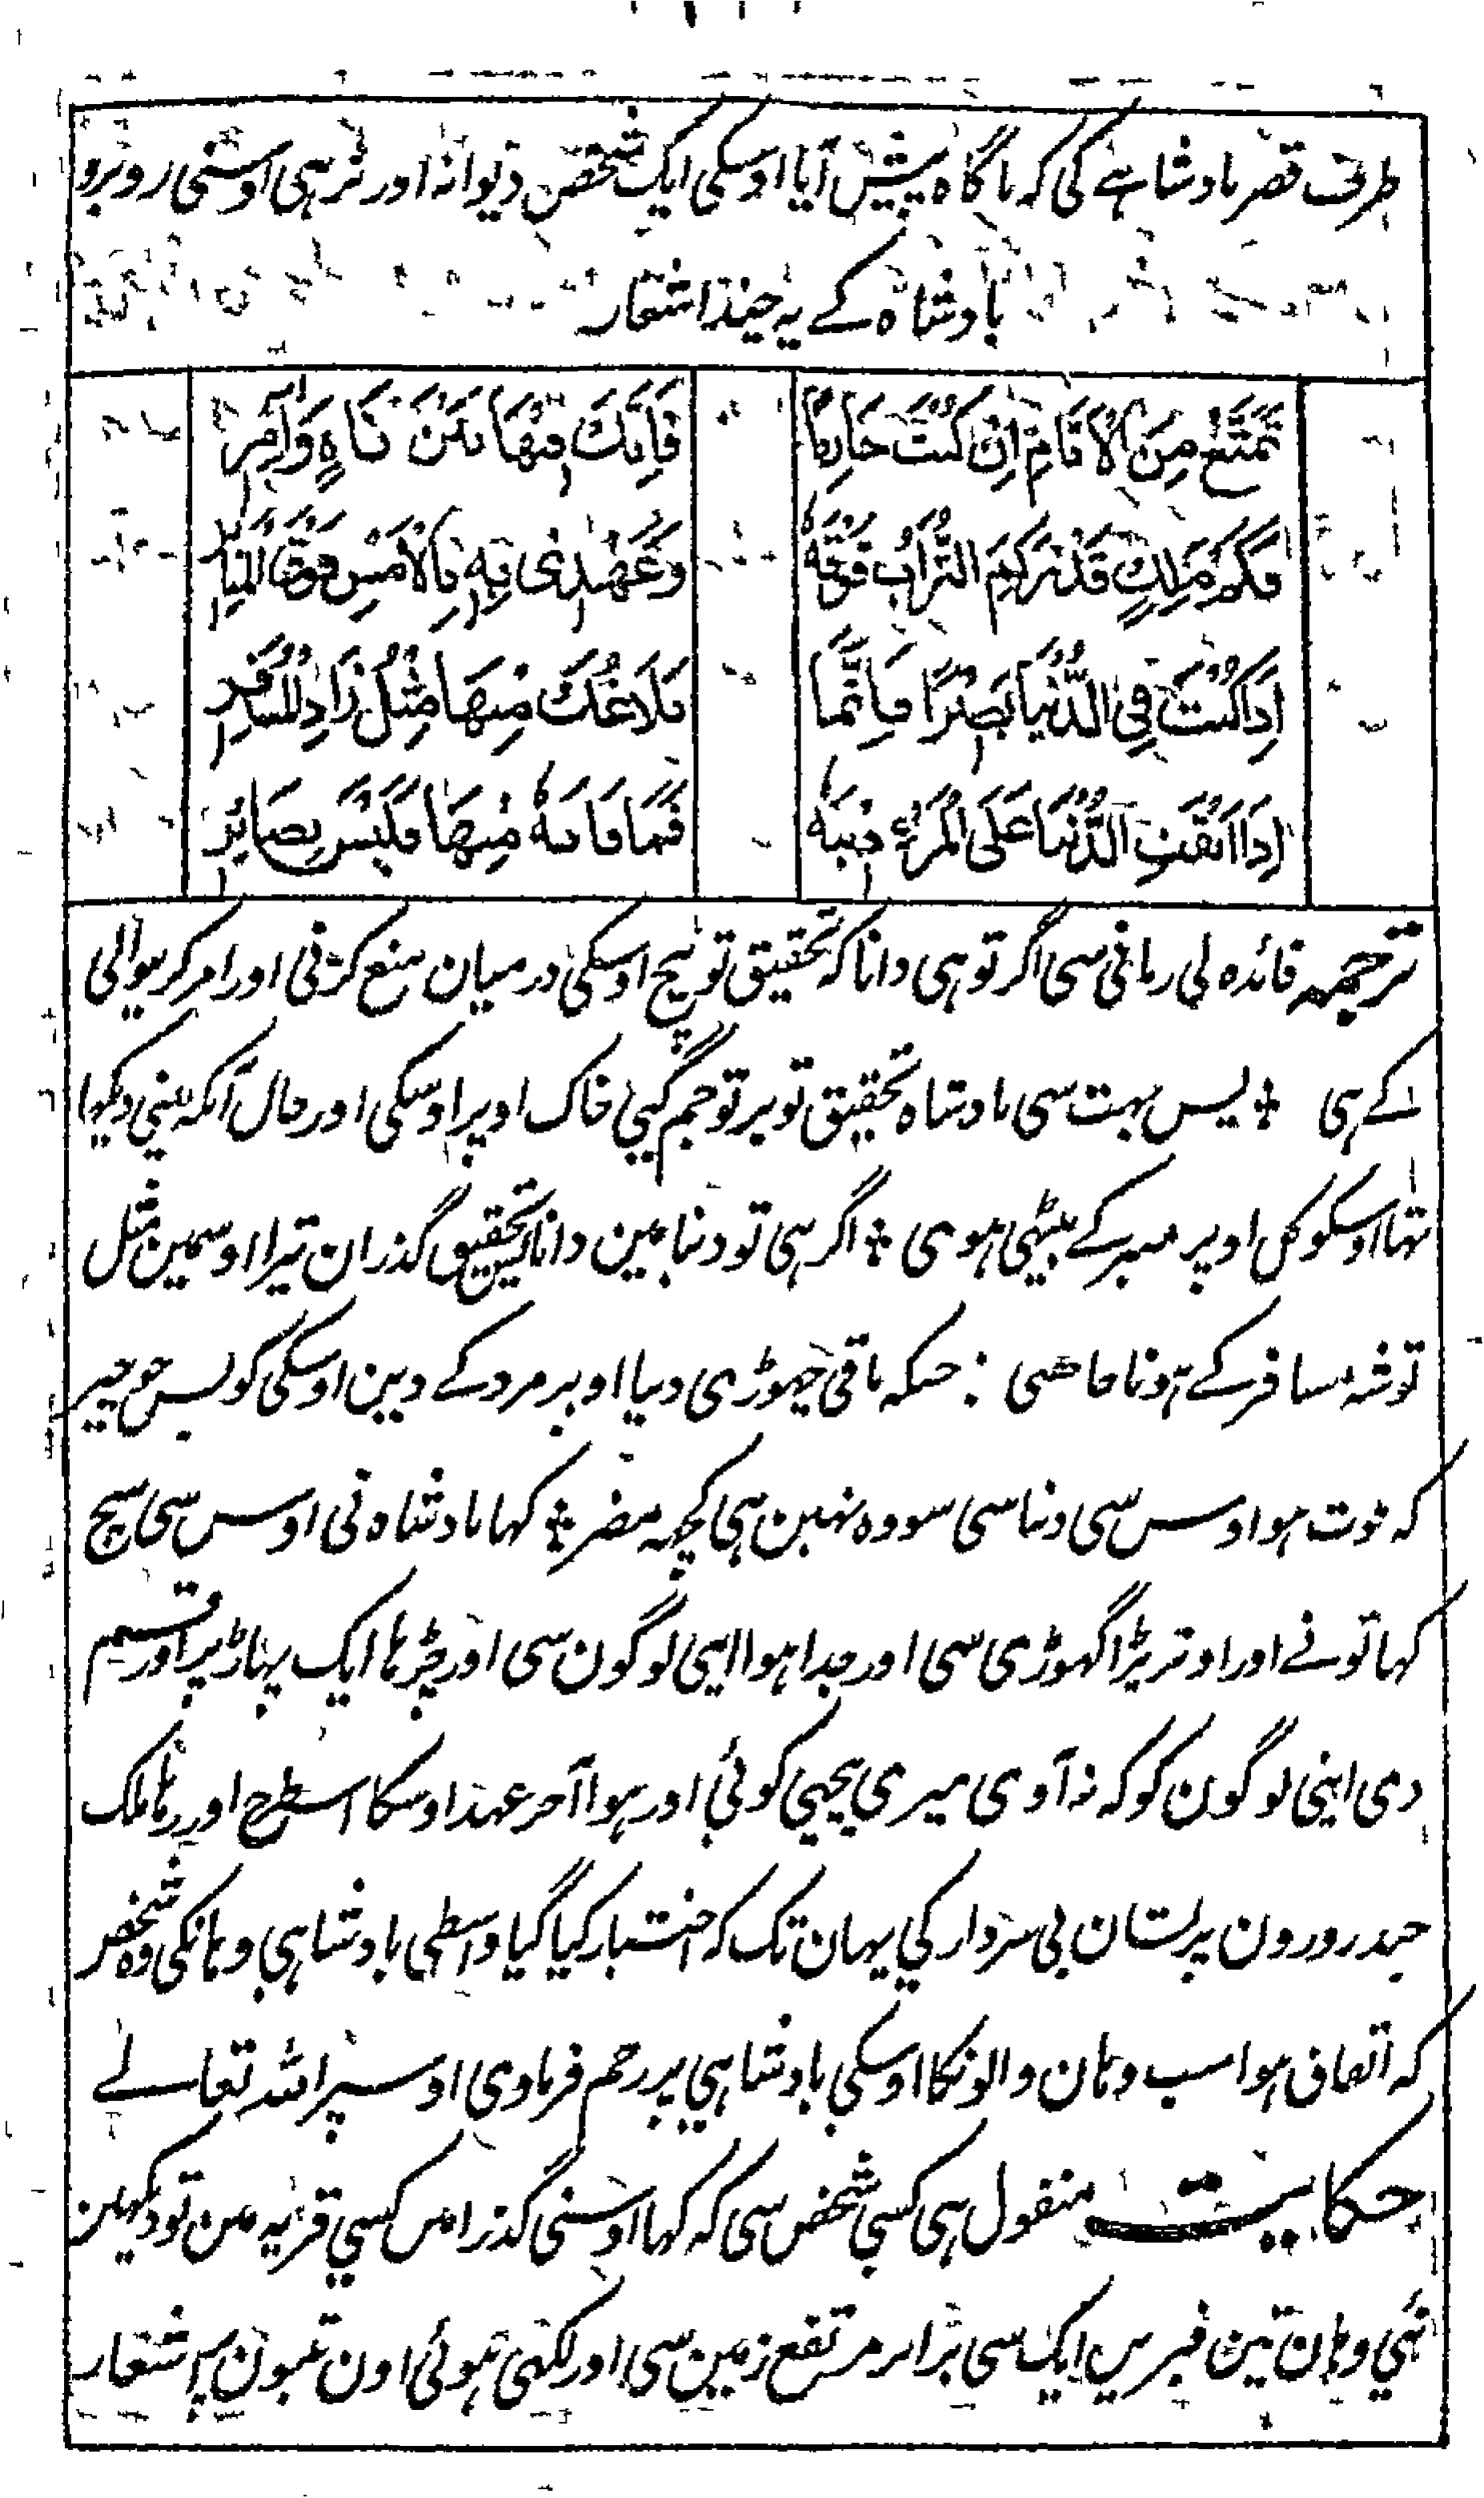 طرف قصر بادشاہے کی کہ ناگاہ پیش آیا اوسکی ایک شخص دیوانہ اور پڑہی اوسنی روبرو
بادشاہ کے یہ چند اشعار
تَمَتَّعْ مِنَ الْاَيَّامِ اِنْ كُنْتَ حَازِمًا فَاِنَّكَ مِنْهَا بَيْنَ نَاهٍ وَاٰمِرٍ
فَكَمْ مَلِكٍ قَدْ رُكِّمَ التُّرَابُ فَوْقَهٗ وَعَهْدِىْ بِهٖ بِالْاَمْسِ فَوْقَ الْمَنَابِرِ
اِذَا كُنْتَ فِى الدُّنْيَا بَصِيْرًا فَاِنَّمَا بَلَاغُكَ مِنْهَا مِثْلُ زَادِ الْمُسَافِرِ
اِذَا اَبْقَتِ الدُّنْيَا عَلَى الْمَرْءِ دِيْنَهٗ فَمَا فَاتَهٗ مِنْهَا فَلَيْسَ بِضَائِرٍ
ترجمہ فائدہ لی زمانی سی اگر تو ہی دانا کہ تحقیق تو بیچ اوسکی درمیان منع کرنی اور امر کرنیوالی
کے ہی ÷ پس بہت سی بادشاہ تحقیق توبرتو جم گیی خاک اوپر اوسکی اور حال آنکہ مینی دیکہا
تہا اوسکو کل اوپر ممبر کے بیٹہی ہوی ÷ اگر ہی تو دنیا مین دانا تحقیق گذران تیرا اوسمین مثل
توشہ مسافر کے ہونا چاہئی : جبکہ باقی چہوڑی دنیا اوپر مرد کے دین اوسکی کو پس جو چیز
کہ فوت ہو اوس سی دنیا سی سو وہ نہین ہی کچہہ مضر ÷ کہا بادشاہ نی اوس سی سچ
کہا تونے اور اوتر پڑا گہوڑی سی اور جدا ہوا اپنی لوگون سی اور چڑہا ایک پہاڑ پر اور قسم
دی اپنی لوگون کو کہ نہ آوی میری پیچہی کوئی اور ہوا آخر عہد اوسکا اسطرح اور رہا ملک
چند روزون پریشان بی سردار کی یہان تک کہ اختیار کیا گیا واسطی بادشاہی وہانکی وہ شخص
کہ اتفاق ہوا سب وہان والونکا اوسکی بادشاہی پر رحم فرماوی اوسپر اللہ تعالے
حکایت منقول ہی کسی شخص سی کہ کہا اوسنی گذرا مین کسی قریہ مین تو دیکہین
مَینی وہان تین قبرین ایک سی برابر مرتفع زمین سی اور لکہی ہوئی اون تینون پر اشعار